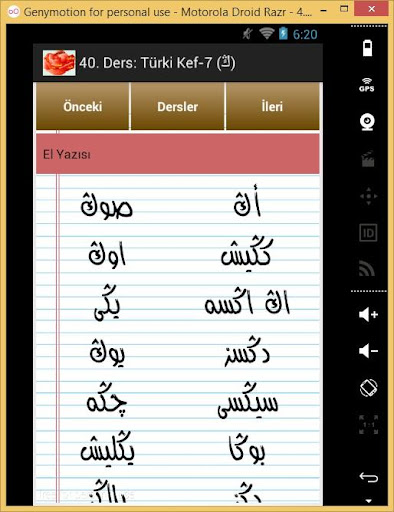 Genymotion for personal use - Motorola Droid Razr - 4....
6:20
40. Ders: Türki Kef-7 (ڭ)
Önceki Dersler İleri
El Yazısı
أڭ صوڭ
كڭیش اوڭ
اڭ اڭسه یڭی
دڭسز یوڭ
سیڭسی چڭه
بوڭا یڭلیش
GPS
ID
1:1